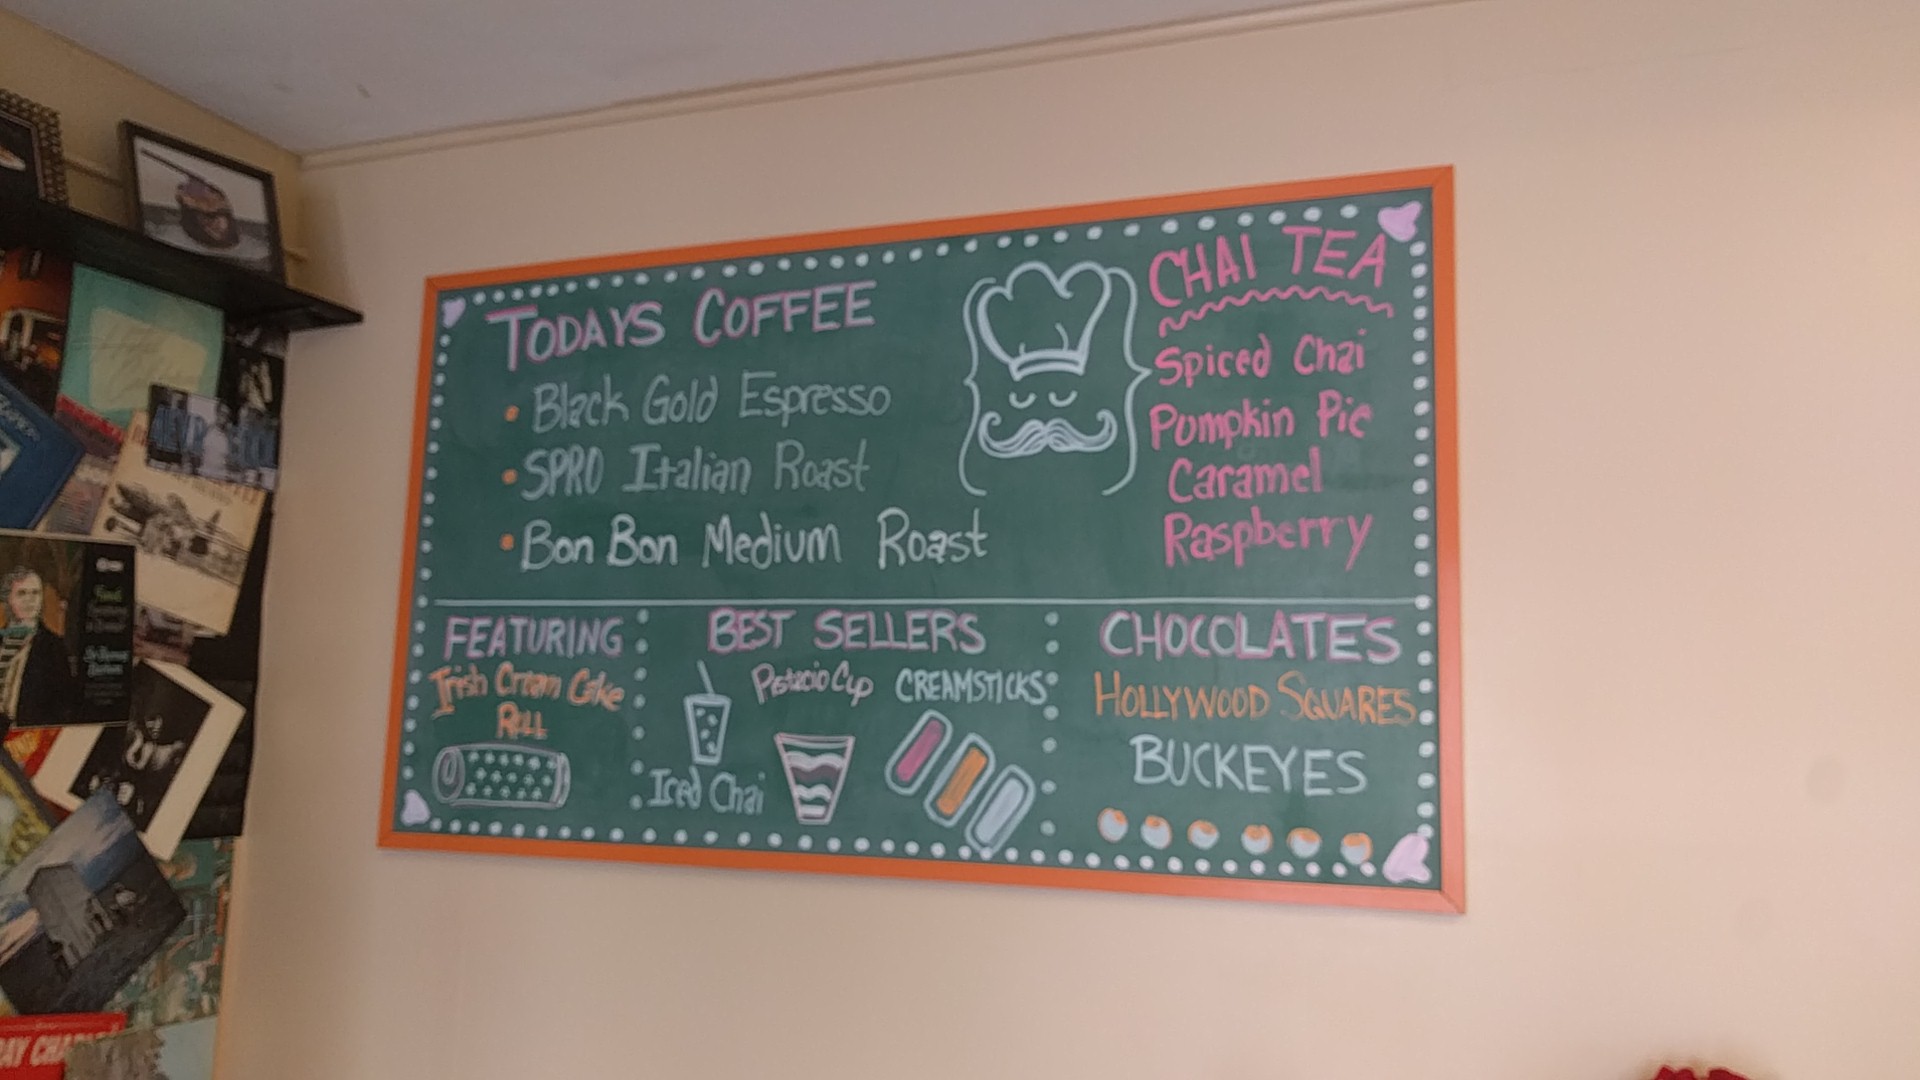 TODAYS COFFEE
• Black Gold Espresso
• SPRO Italian Roast
• Bon Bon Medium Roast
CHAI TEA
Spiced Chai
Pumpkin Pie
Caramel
Raspberry
FEATURING
Irish Cream Cake
Roll
BEST SELLERS
Iced Chai
Pistacio Cup
CREAMSTICKS
CHOCOLATES
HOLLYWOOD SQUARES
BUCKEYES
RAY CHA